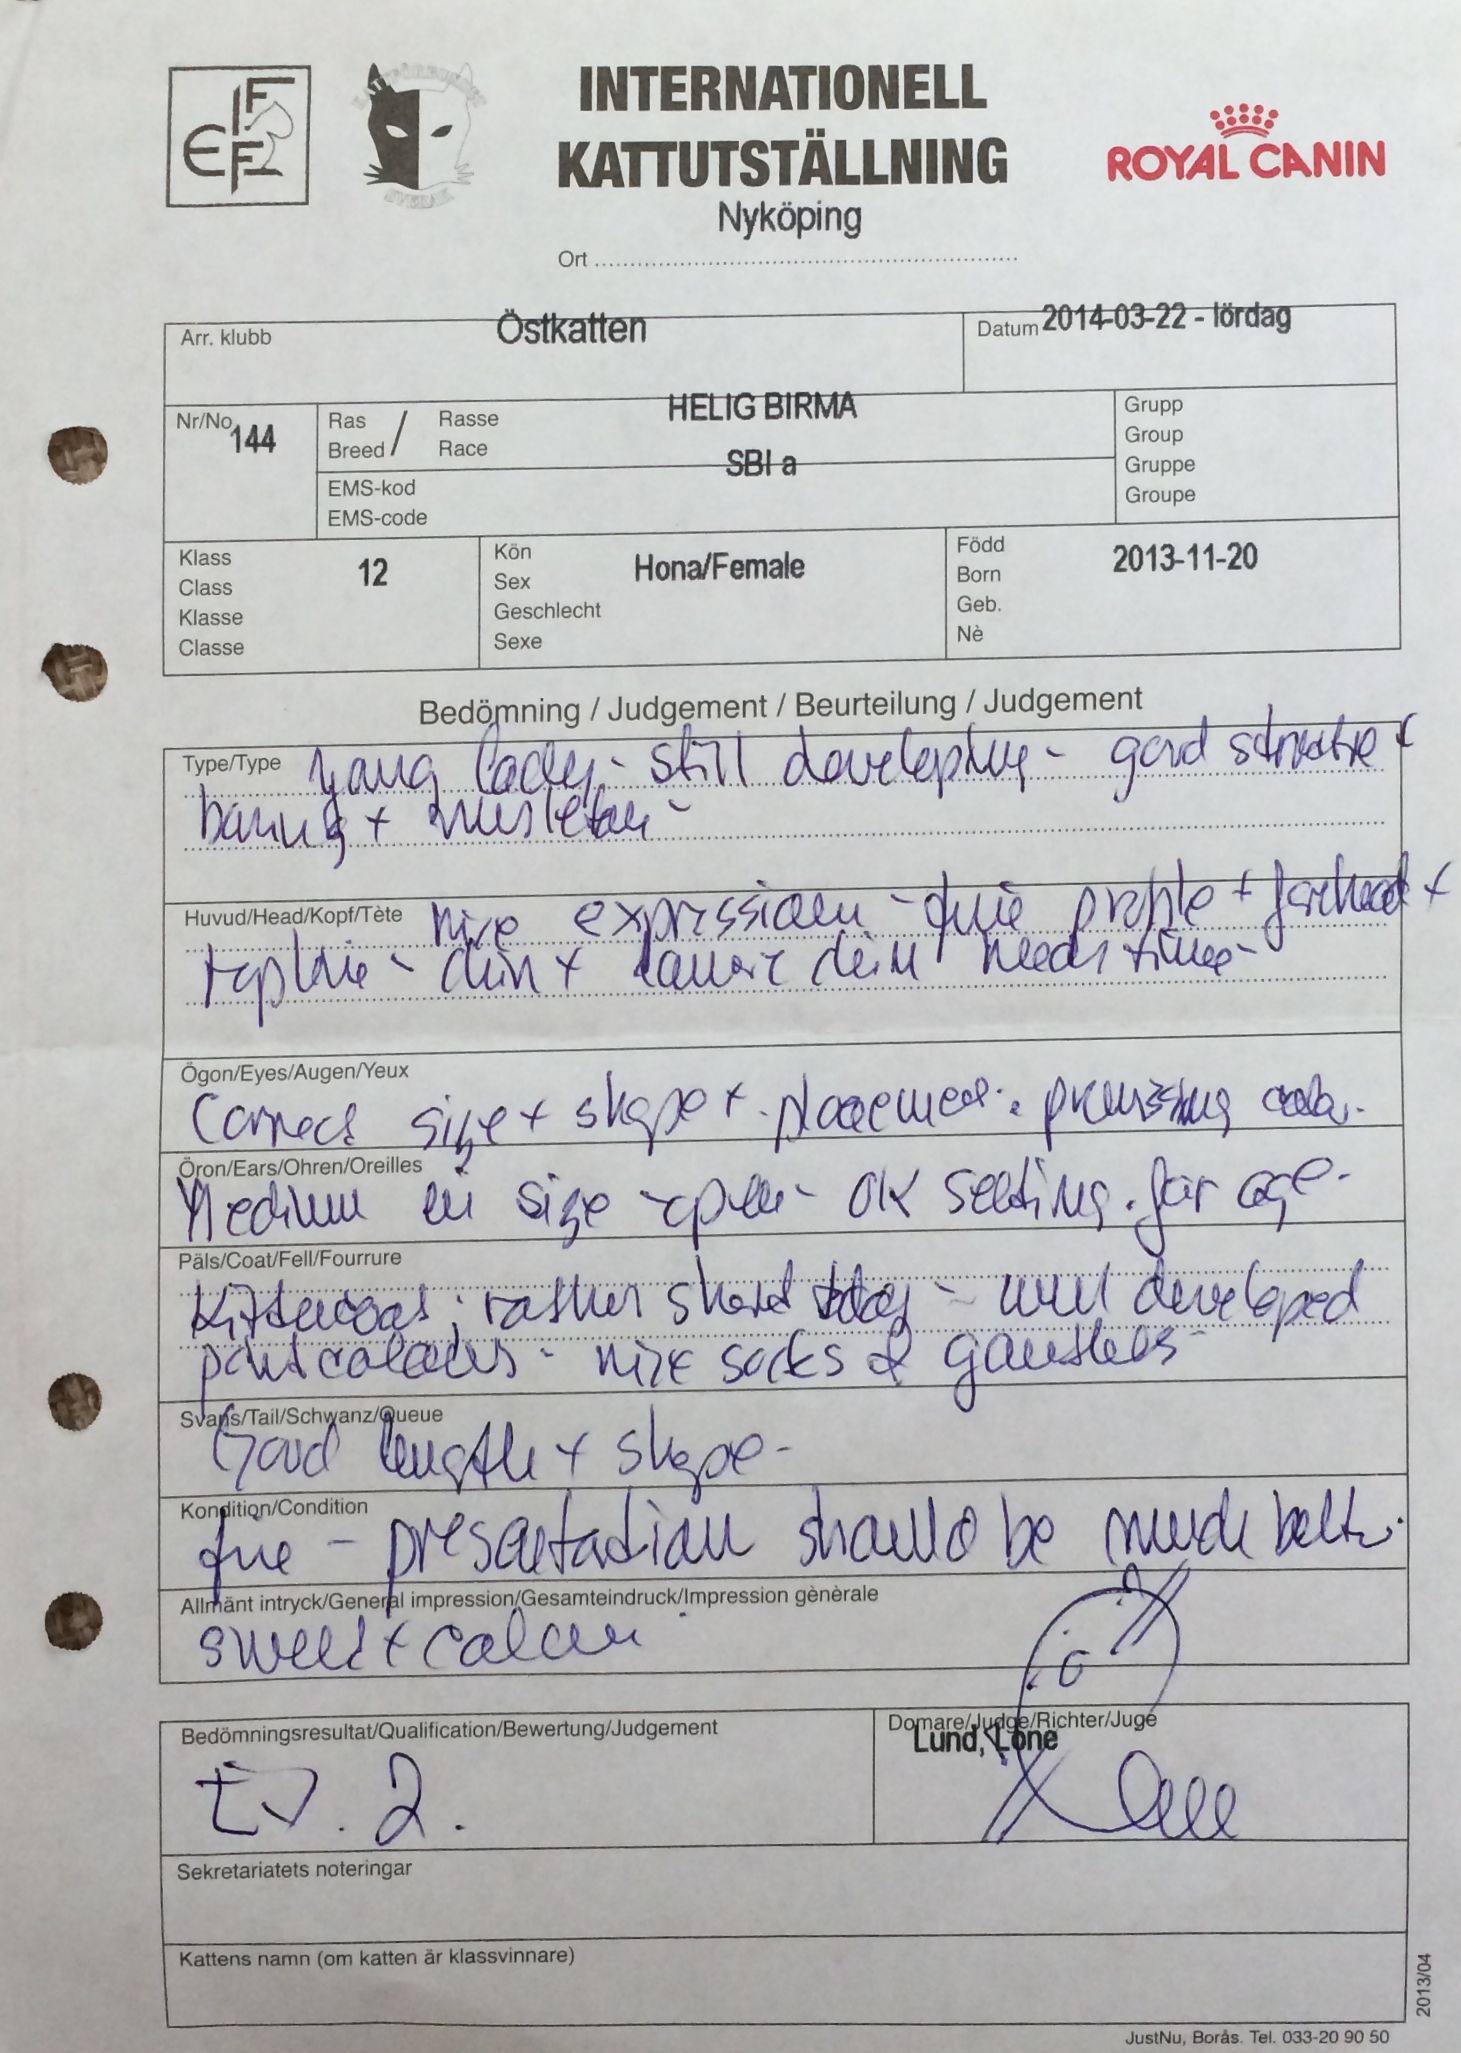 FIFe
INTERNATIONELL
KATTUTSTÄLLNING
ROYAL CANIN
Nyköping
Ort
Arr. klubb Östkatten Datum 2014-03-22 - lördag
Nr/No 144 Ras / Rasse HELIG BIRMA Grupp
Breed / Race Group
SBI a Gruppe
EMS-kod Groupe
EMS-code
Klass 12 Kön Hona/Female Född 2013-11-20
Class Sex Born
Klasse Geschlecht Geb.
Classe Sexe Nè
Bedömning / Judgement / Beurteilung / Judgement
Type/Type young lady - still developing - good structure +
boning +
Huvud/Head/Kopf/Tète nice expression - fine profile + forehead +
topline - chin + lower chin needs time -
Ögon/Eyes/Augen/Yeux
Correct size + shape + placement. promissing color.
Öron/Ears/Ohren/Oreilles
Medium in size - open - OK setting. for age.
Päls/Coat/Fell/Fourrure
Kittencoat, rather short today - well developed
pointcolours - nice socks & gauntlets -
Svans/Tail/Schwanz/Queue
Good length + shape -
Kondition/Condition
fine - presentation should be much better.
Allmänt intryck/General impression/Gesamteindruck/Impression gènèrale
sweet + calm
Bedömningsresultat/Qualification/Bewertung/Judgement Domare/Judge/Richter/Juge
Lund, Lone
Ex. 2.
Sekretariatets noteringar
Kattens namn (om katten är klassvinnare)
2013/04
JustNu, Borås. Tel. 033-20 90 50